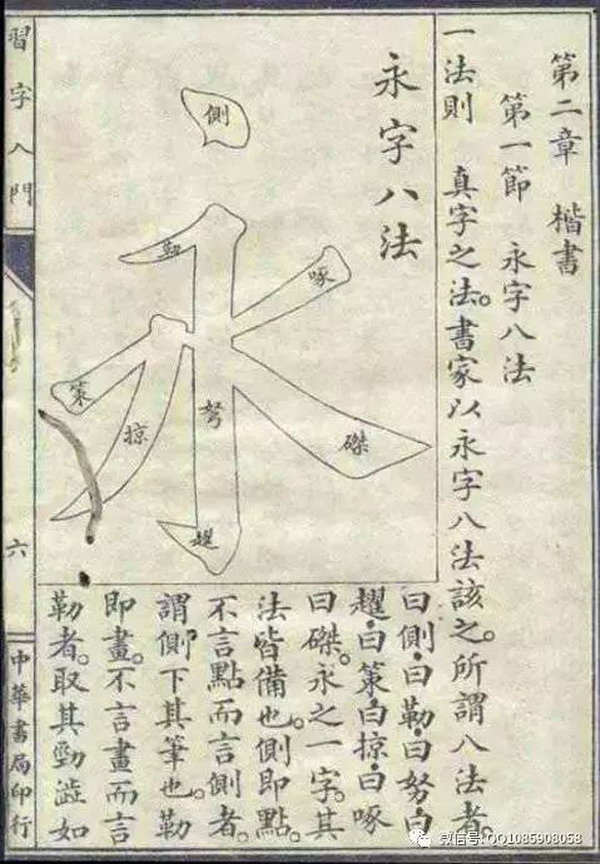 第二章 楷書
第一節 永字八法
一法則 真字之法。書家以永字八法該之。所謂八法者。
曰側。曰勒。曰努。曰
趯。曰策。曰掠。曰啄
曰磔。永之一字。其
法皆備也。側即點。
不言點而言側者。
謂側下其筆也。勒
即畫。不言畫而言
勒者。取其勁澁如
永字八法
側
勒
啄
策
掠
努
磔
趯
習字入門
六
中華書局印行
微信号:QQ1085908058